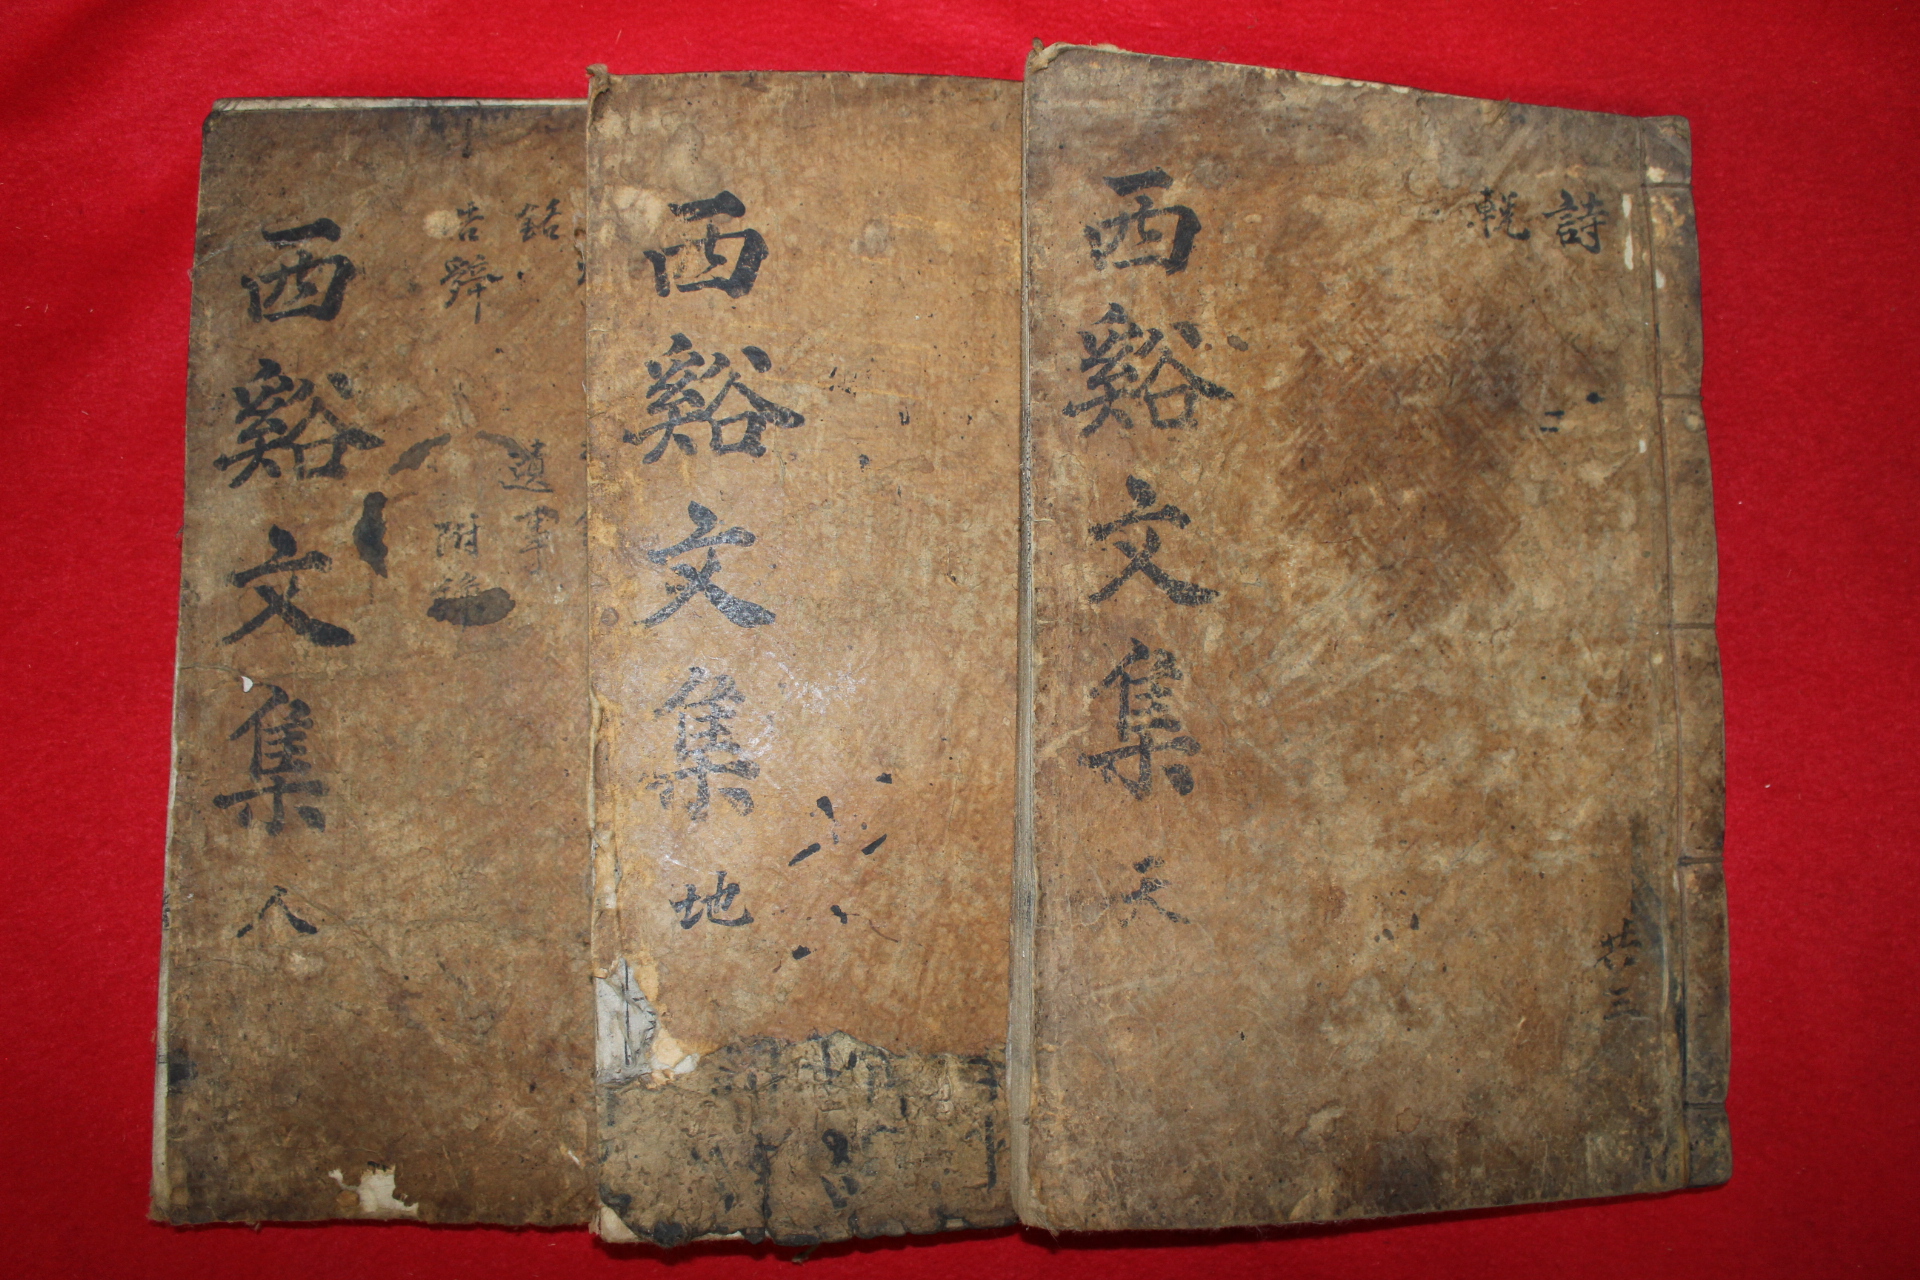 詩
輓
共三
西谿文集 天
西谿文集 地
銘
遺事
告辭
附
西谿文集 人